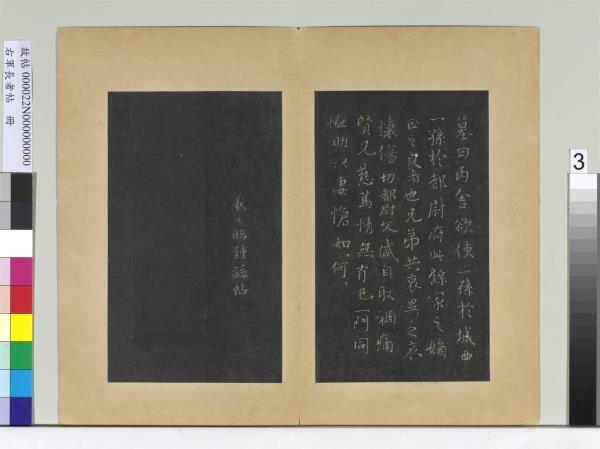 墓田丙舍欲使一孫於城西
一孫於都尉府此繇家之嫡
正之良者也兄弟共哀異之哀
懷傷切都尉文岱自取禍痛
賢兄慈篤情無有已一門同
恤助以悽愴如何〻
羲之臨鍾繇帖
故帖 000022N000000000
右軍長者帖 冊
3